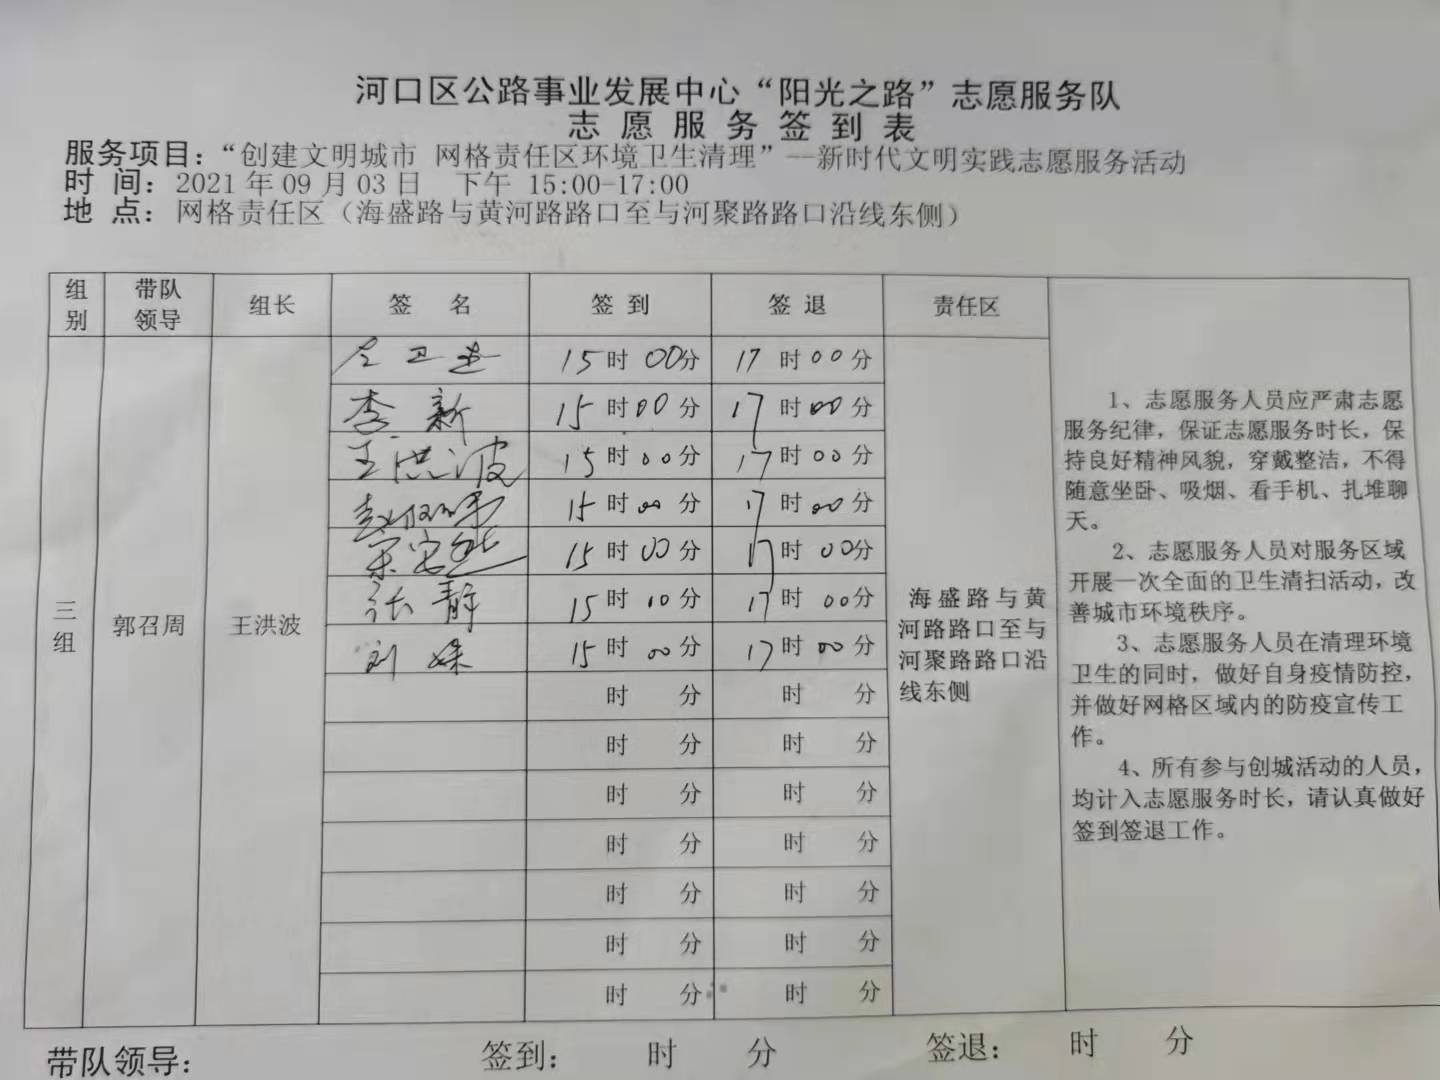 河口区公路事业发展中心“阳光之路”志愿服务队
志愿服务签到表
服务项目：“创建文明城市 网格责任区环境卫生清理”--新时代文明实践志愿服务活动
时 间：2021年09月03日 下午 15:00-17:00
地 点：网格责任区（海盛路与黄河路路口至与河聚路路口沿线东侧）
组别 带队领导 组长 签 名 签 到 签 退 责任区
15时00分 17时00分
李新 15时00分 17时00分
王洪波 15时00分 17时00分
15时00分 17时00分
15时00分 17时00分
张静 15时10分 17时00分
刘 15时00分 17时00分
时 分 时 分
时 分 时 分
时 分 时 分
时 分 时 分
时 分 时 分
时 分 时 分
时 分 时 分
三组
郭召周
王洪波
海盛路与黄
河路路口至与
河聚路路口沿
线东侧
1、志愿服务人员应严肃志愿
服务纪律，保证志愿服务时长，保
持良好精神风貌，穿戴整洁，不得
随意坐卧、吸烟、看手机、扎堆聊
天。
2、志愿服务人员对服务区域
开展一次全面的卫生清扫活动，改
善城市环境秩序。
3、志愿服务人员在清理环境
卫生的同时，做好自身疫情防控，
并做好网格区域内的防疫宣传工
作。
4、所有参与创城活动的人员，
均计入志愿服务时长，请认真做好
签到签退工作。
带队领导： 签到： 时 分 签退： 时 分